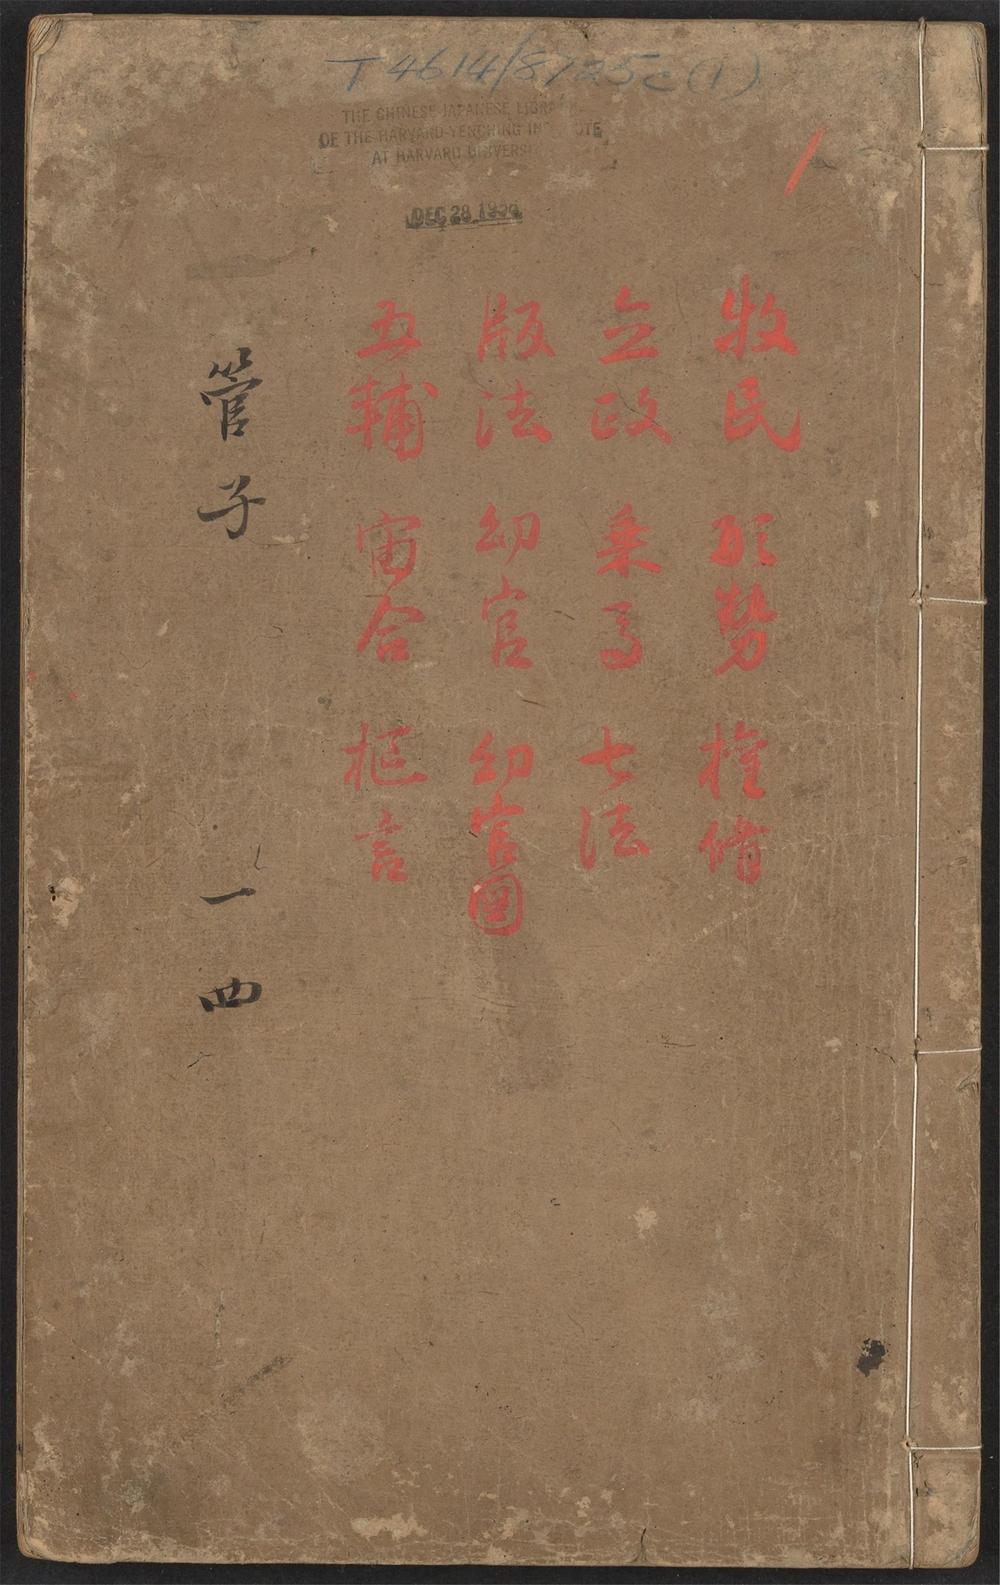 T 4614/8725c (1)
THE CHINESE-JAPANESE LIBRA
OF THE HARVARD-YENCHING IN UTE
AT HARVARD UNIVERSI
DEC 28
牧民 形勢 權修
立政 乗馬 七法
版法 幼官 幼官圖
五輔 宙合 樞言
管子 一 四